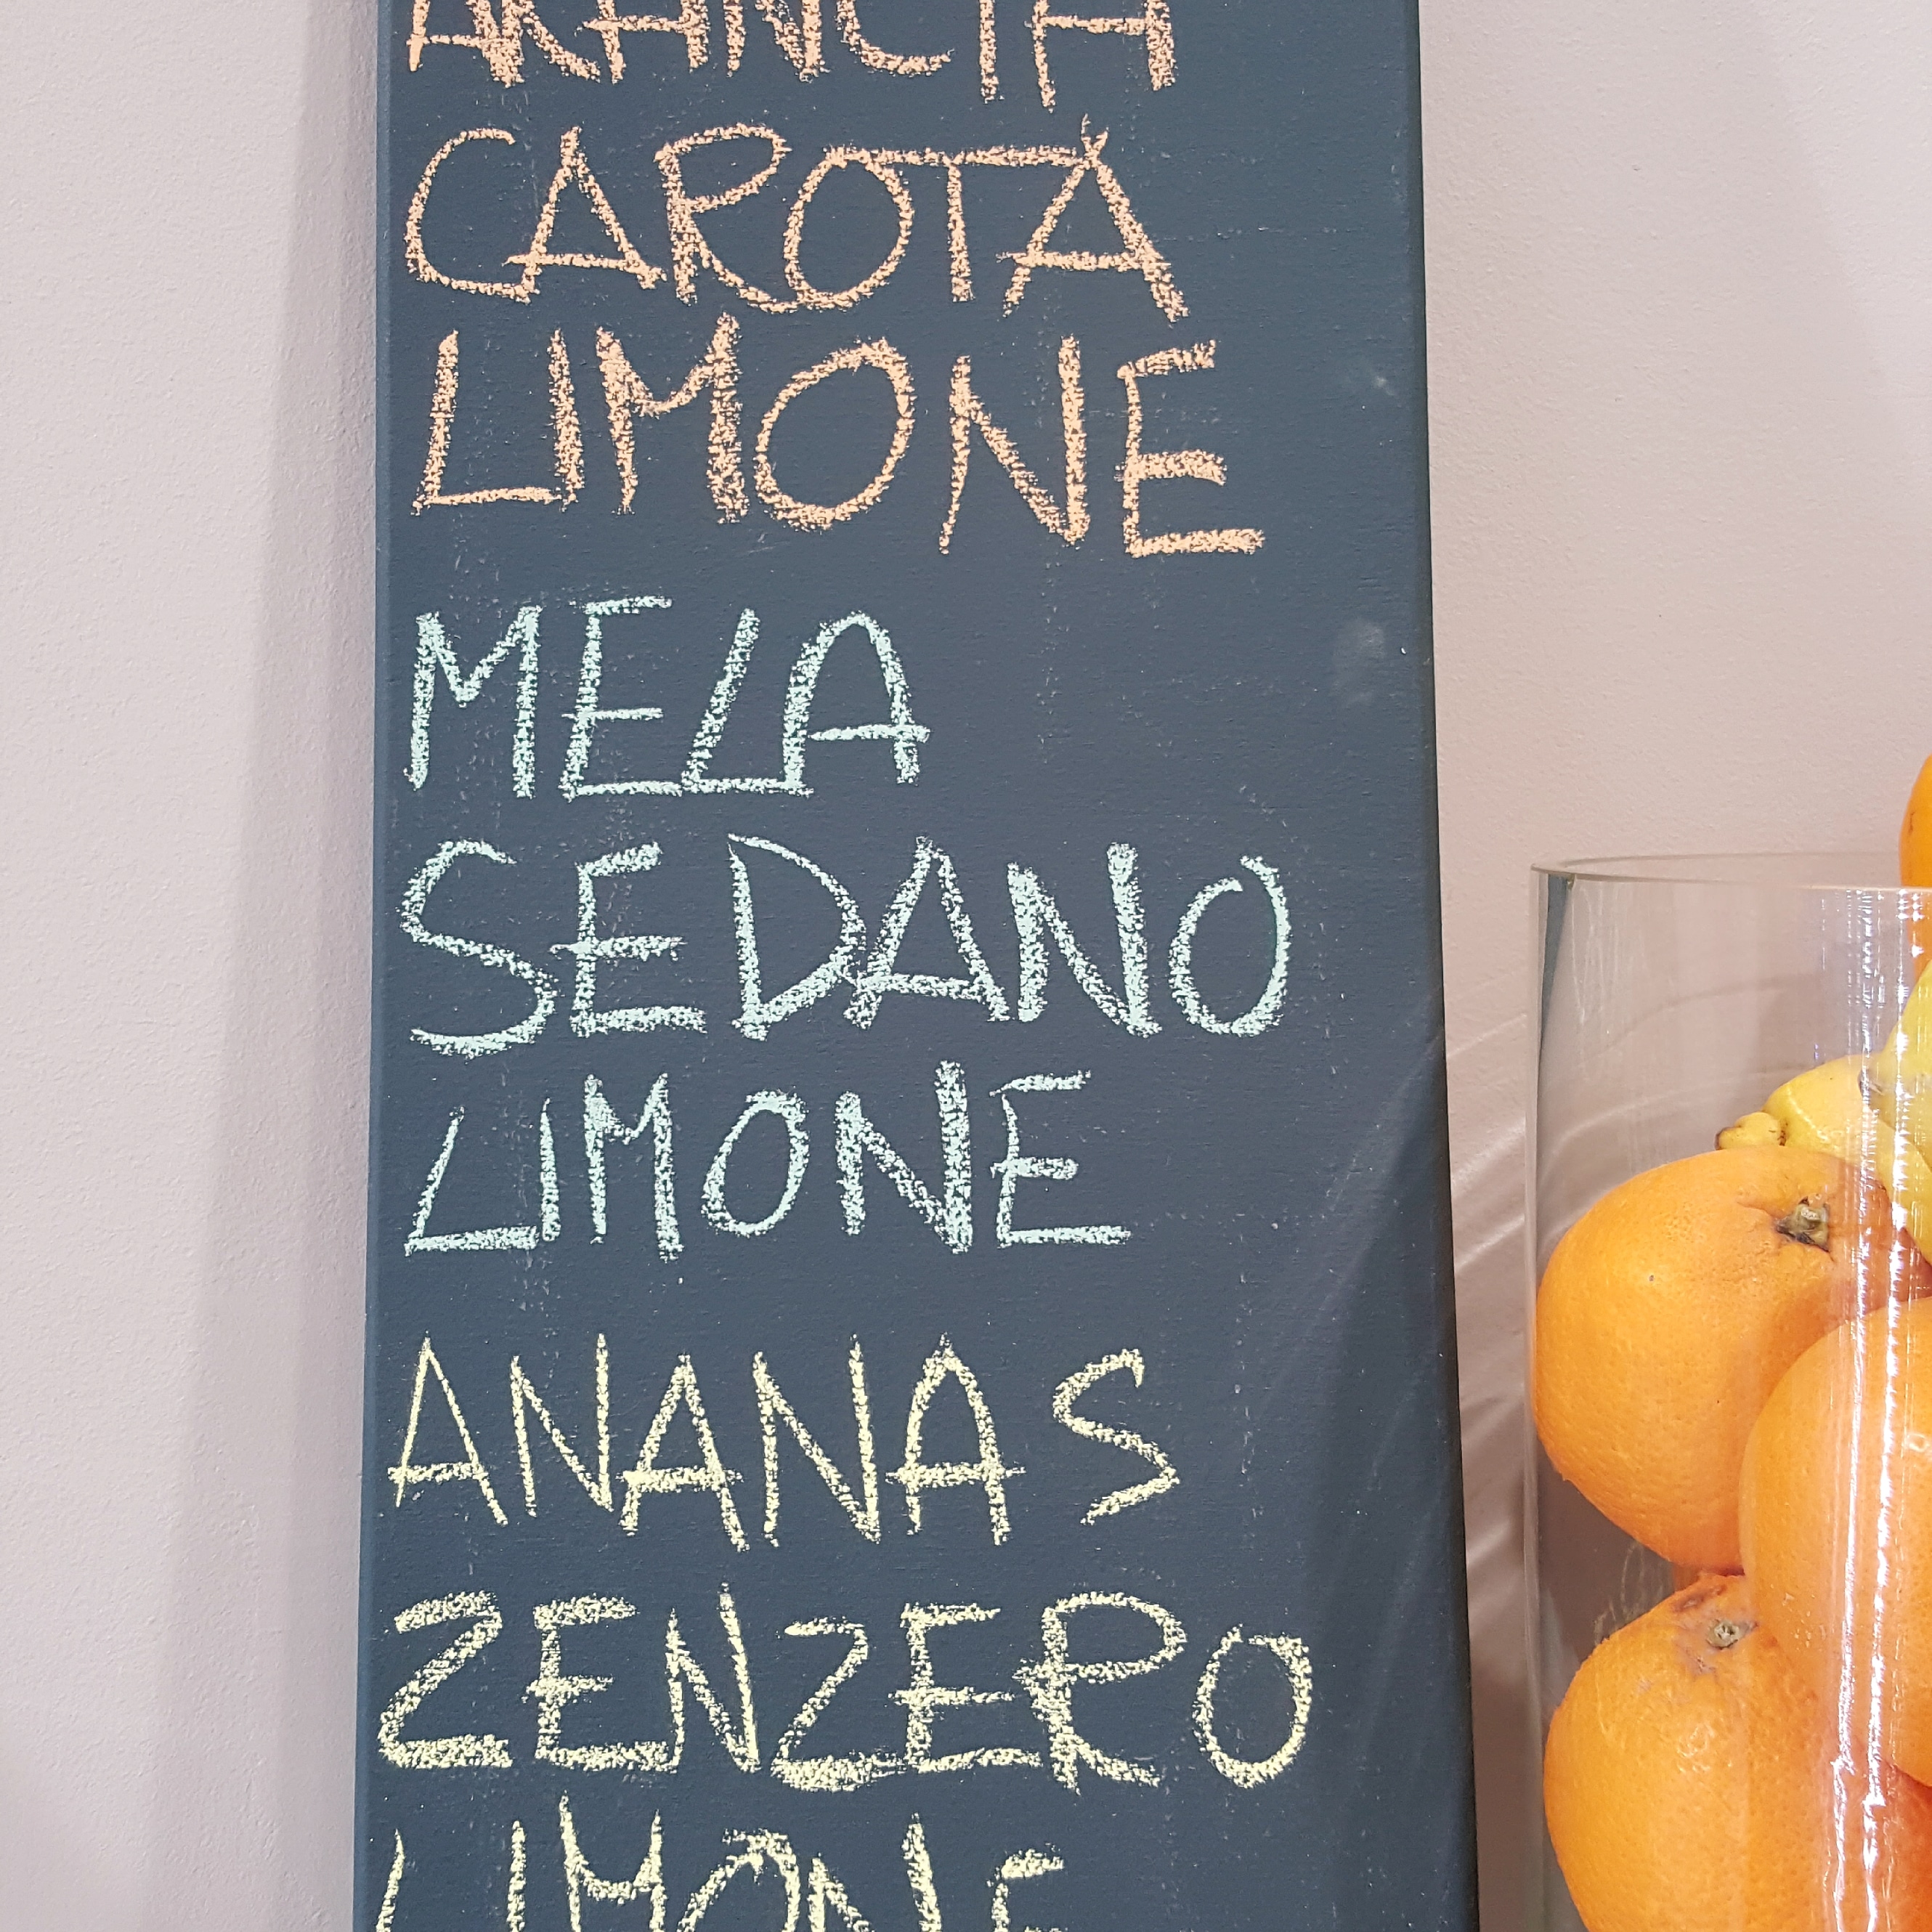 ARANCIA
CAROTA
LIMONE
MELA
SEDANO
LIMONE
ANANAS
ZENZERO
LIMONE